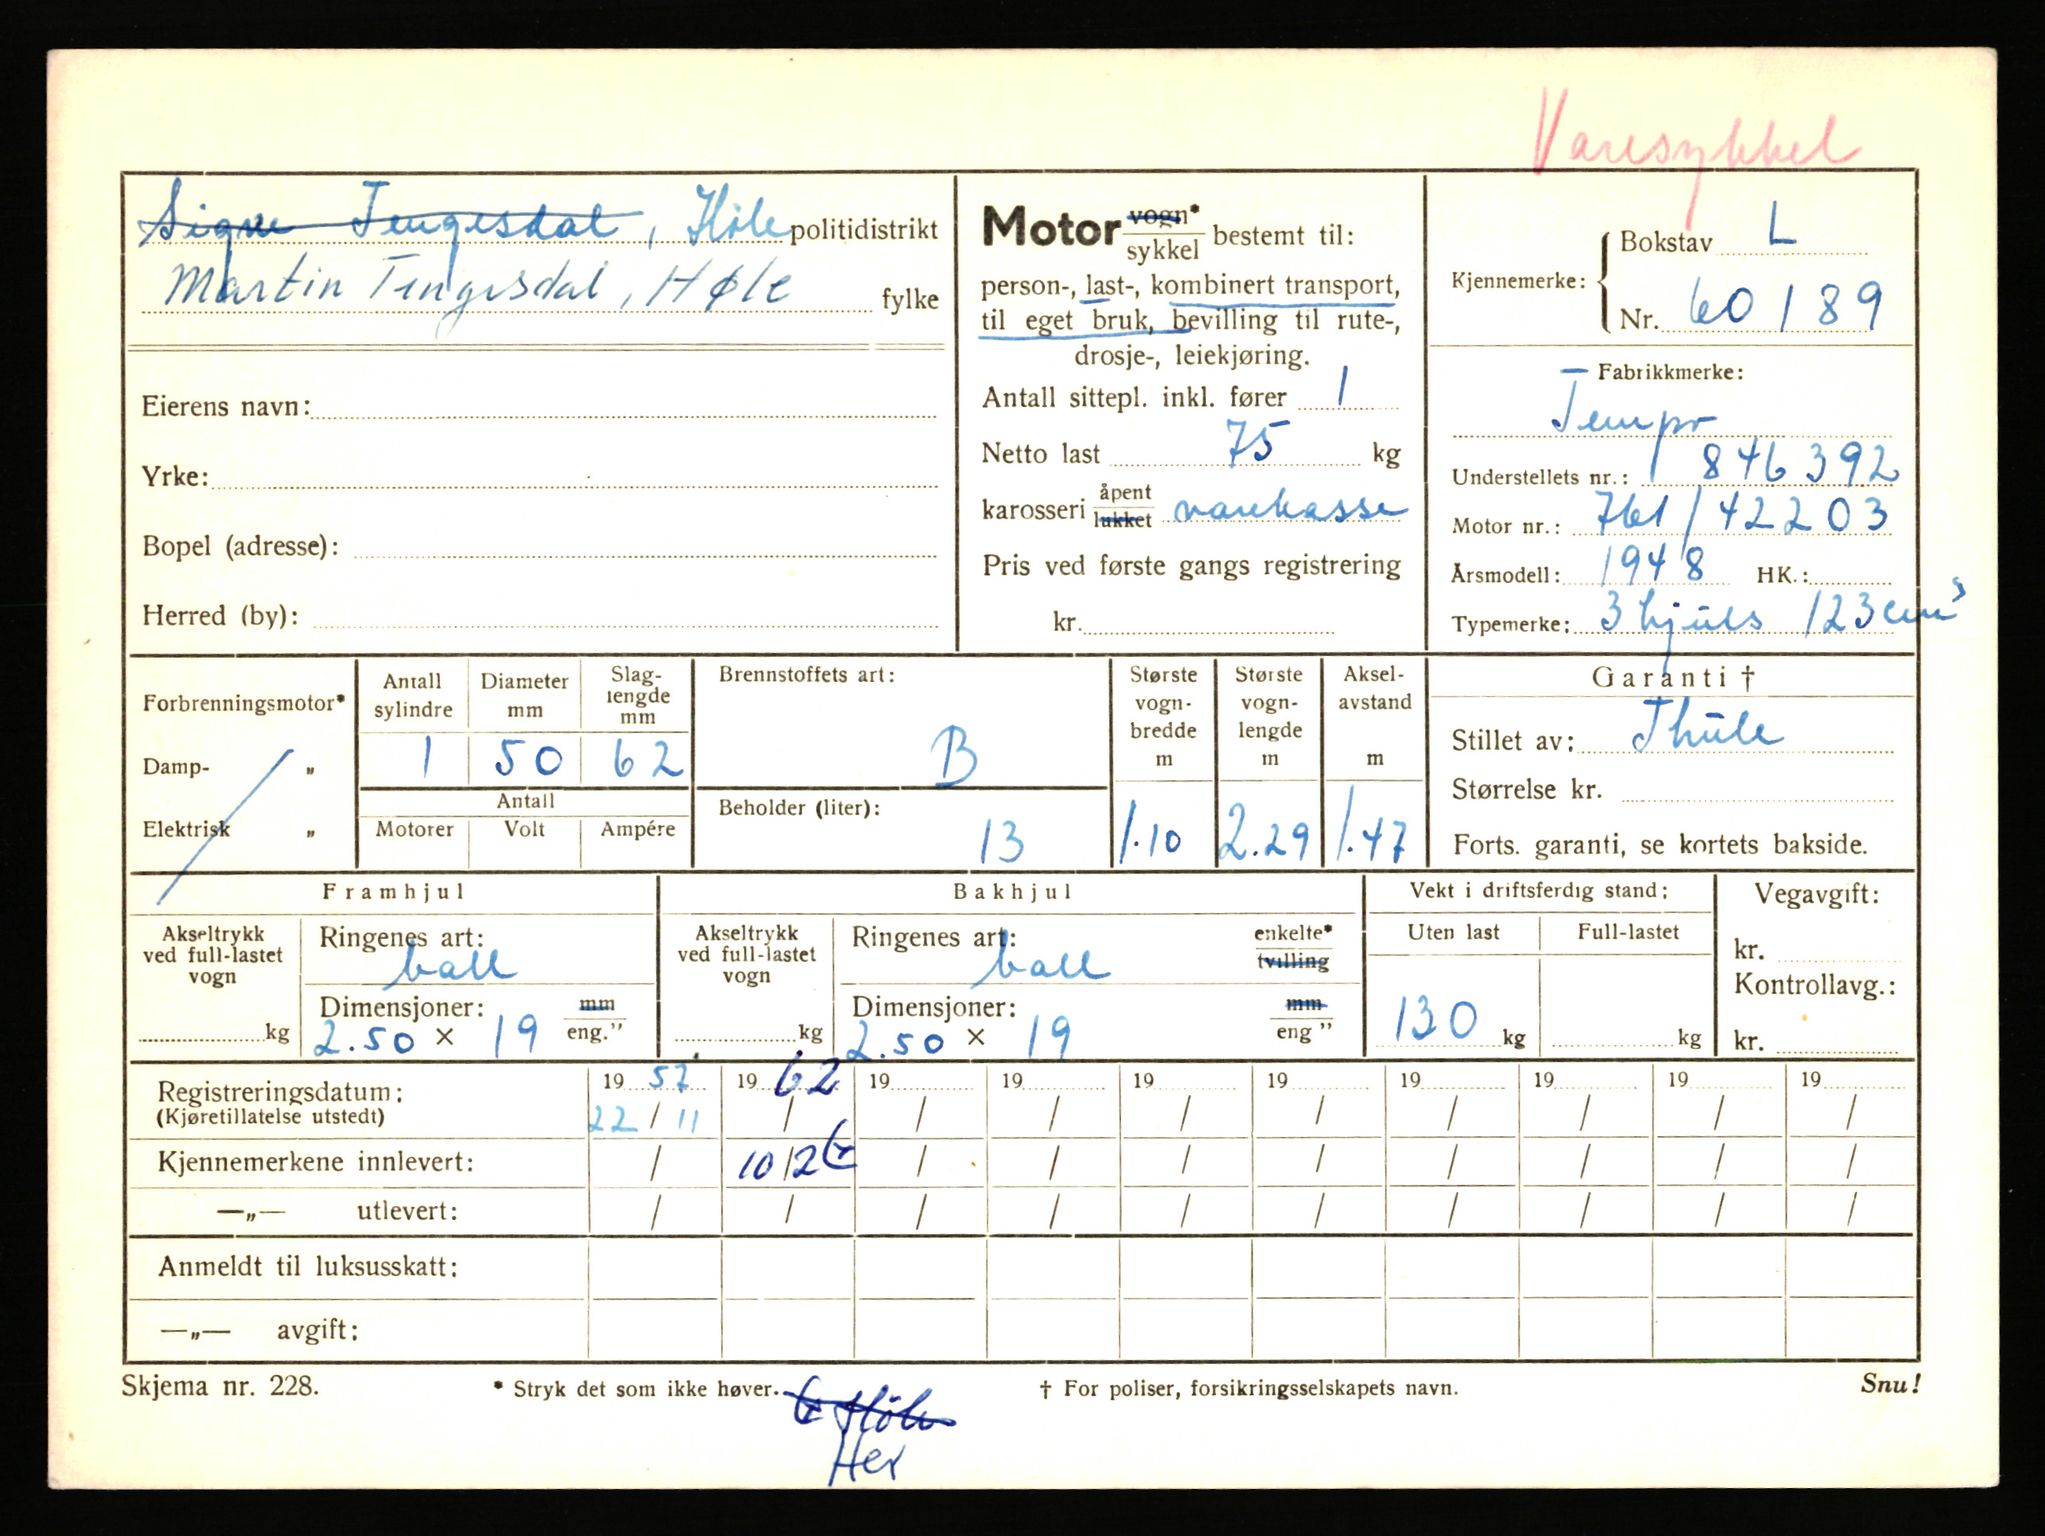 Varesykkel
Signe Tengesdal, Høle politidistrikt
Martin Tengesdal, Høle fylke
Eierens navn:
Yrke:
Bopel (adresse):
Herred (by):
Motor vogn* sykkel bestemt til:
person-, last-, kombinert transport,
til eget bruk, bevilling til rute-,
drosje-, leiekjøring.
Antall sittepl. inkl. fører 1
Netto last 75 kg
karosseri åpent lukket varekasse
Pris ved første gangs registrering
kr.
Kjennemerke: Bokstav L
Nr. 60189
Fabrikkmerke:
Tempo
Understellets nr.: 846392
Motor nr.: 761/42203
Årsmodell: 1948 HK.:
Typemerke: 3 hjuls 123 cm³
Forbrenningsmotor*
Damp- „
Elektrisk „
Antall sylindre Diameter mm Slaglengde mm
1 50 62
Antall
Motorer Volt Ampére
Brennstoffets art:
B
Beholder (liter):
13
Største vogn-bredde m
1.10
Største vogn-lengde m
2.29
Aksel-avstand m
1.47
Garanti †
Stillet av: Thule
Størrelse kr.
Forts. garanti, se kortets bakside.
Framhjul
Akseltrykk ved full-lastet vogn
kg
Ringenes art:
ball
Dimensjoner: mm
2.50 × 19 eng.”
Bakhjul
Akseltrykk ved full-lastet vogn
kg
Ringenes art: enkelte*
ball tvilling
Dimensjoner: mm
2.50 × 19 eng ”
Vekt i driftsferdig stand:
Uten last Full-lastet
130 kg kg
Vegavgift:
kr.
Kontrollavg.:
kr.
Registreringsdatum: 19 57 19 62 19 19 19 19 19 19 19 19
(Kjøretillatelse utstedt) 22 / 11 / / / / / / / / /
Kjennemerkene innlevert: / 10/2 / / / / / / / /
—„— utlevert: / / / / / / / / / /
Anmeldt til luksusskatt:
—„— avgift:
Skjema nr. 228. * Stryk det som ikke høver. † For poliser, forsikringsselskapets navn. Snu!
Høle
Her